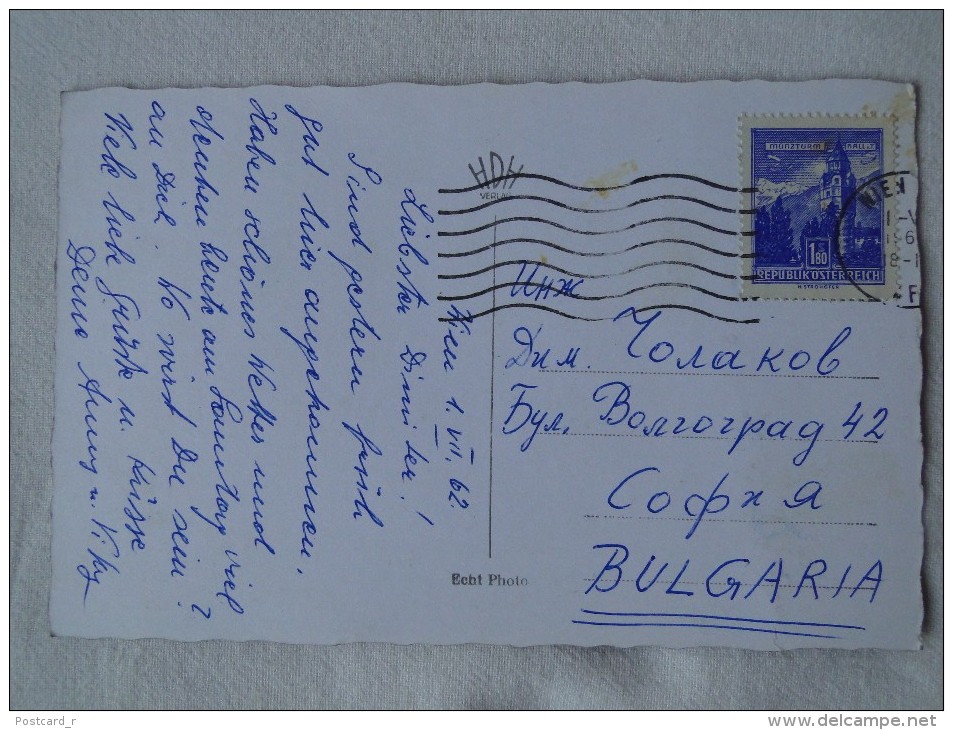 Wien 1. VII. 62.
Liebster Dimiter!
Sind gestern früh
gut hier angekommen.
Haben schönes Wetter und
denken heute am Sonntag viel
an Dich. Wo wirst Du sein?
Viele liebe Grüsse u. Küsse
Deine
HDH
VERLAG
Echt Photo
MÜNZTURM HALL i. T.
1.80
REPUBLIK ÖSTERREICH
WIEN
Инж
Дим. Чолаков
Бул. Волгоград 42
София
BULGARIA
Postcard_r
www.delcampe.net